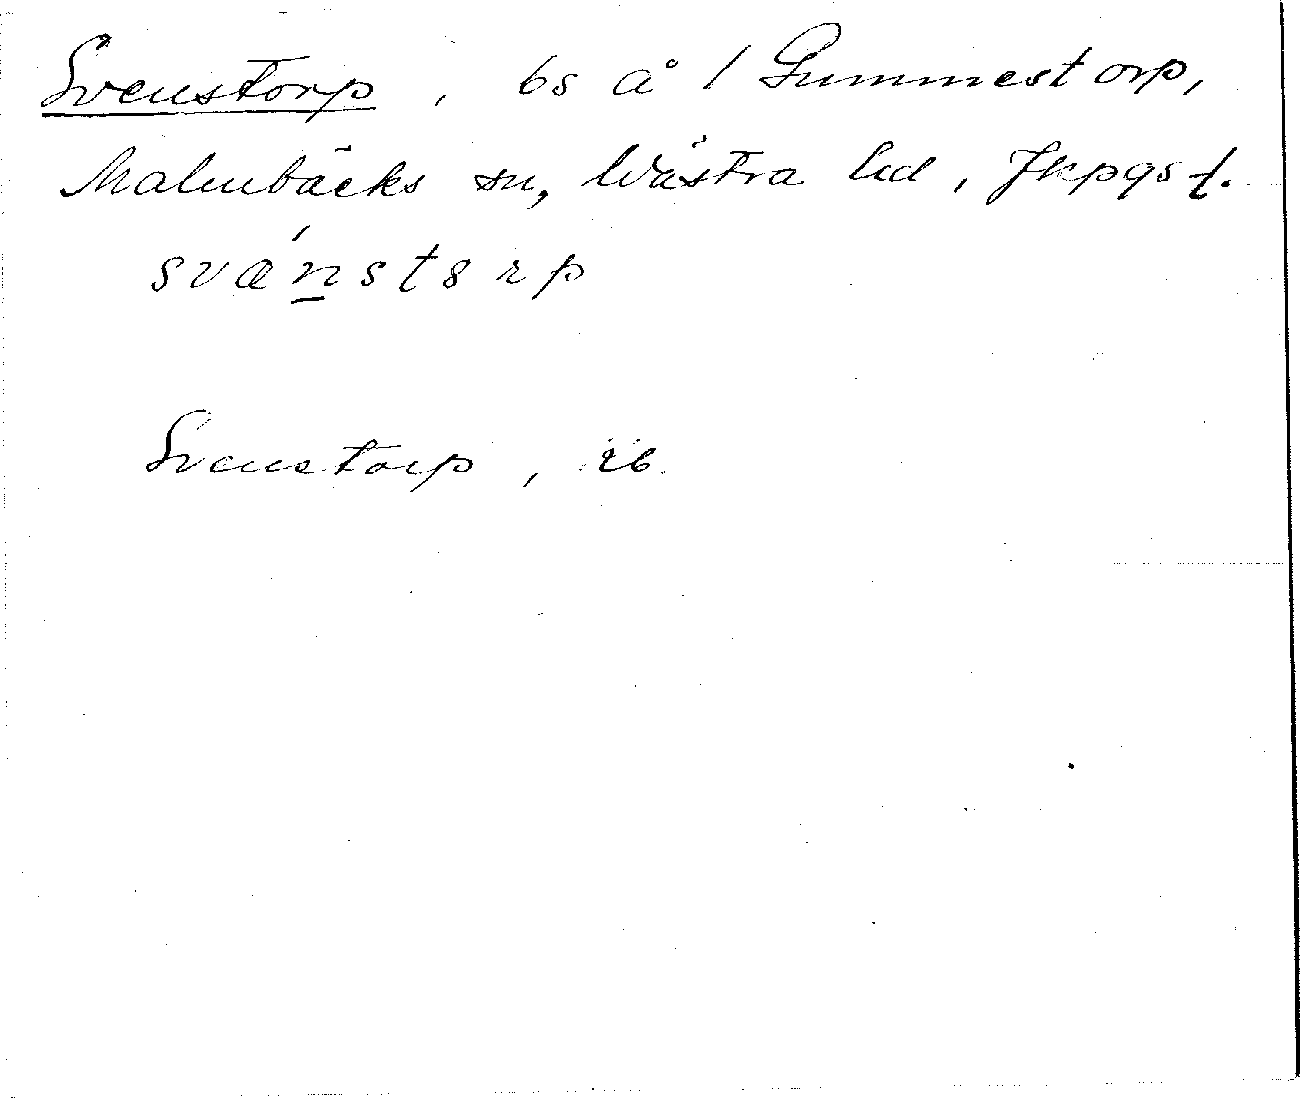 Svenstorp, bs å 1 Gummestorp,
Malmbäcks sn, Västra hd, Jkpgs l.
svænst8rp
Svenstorp, ib.